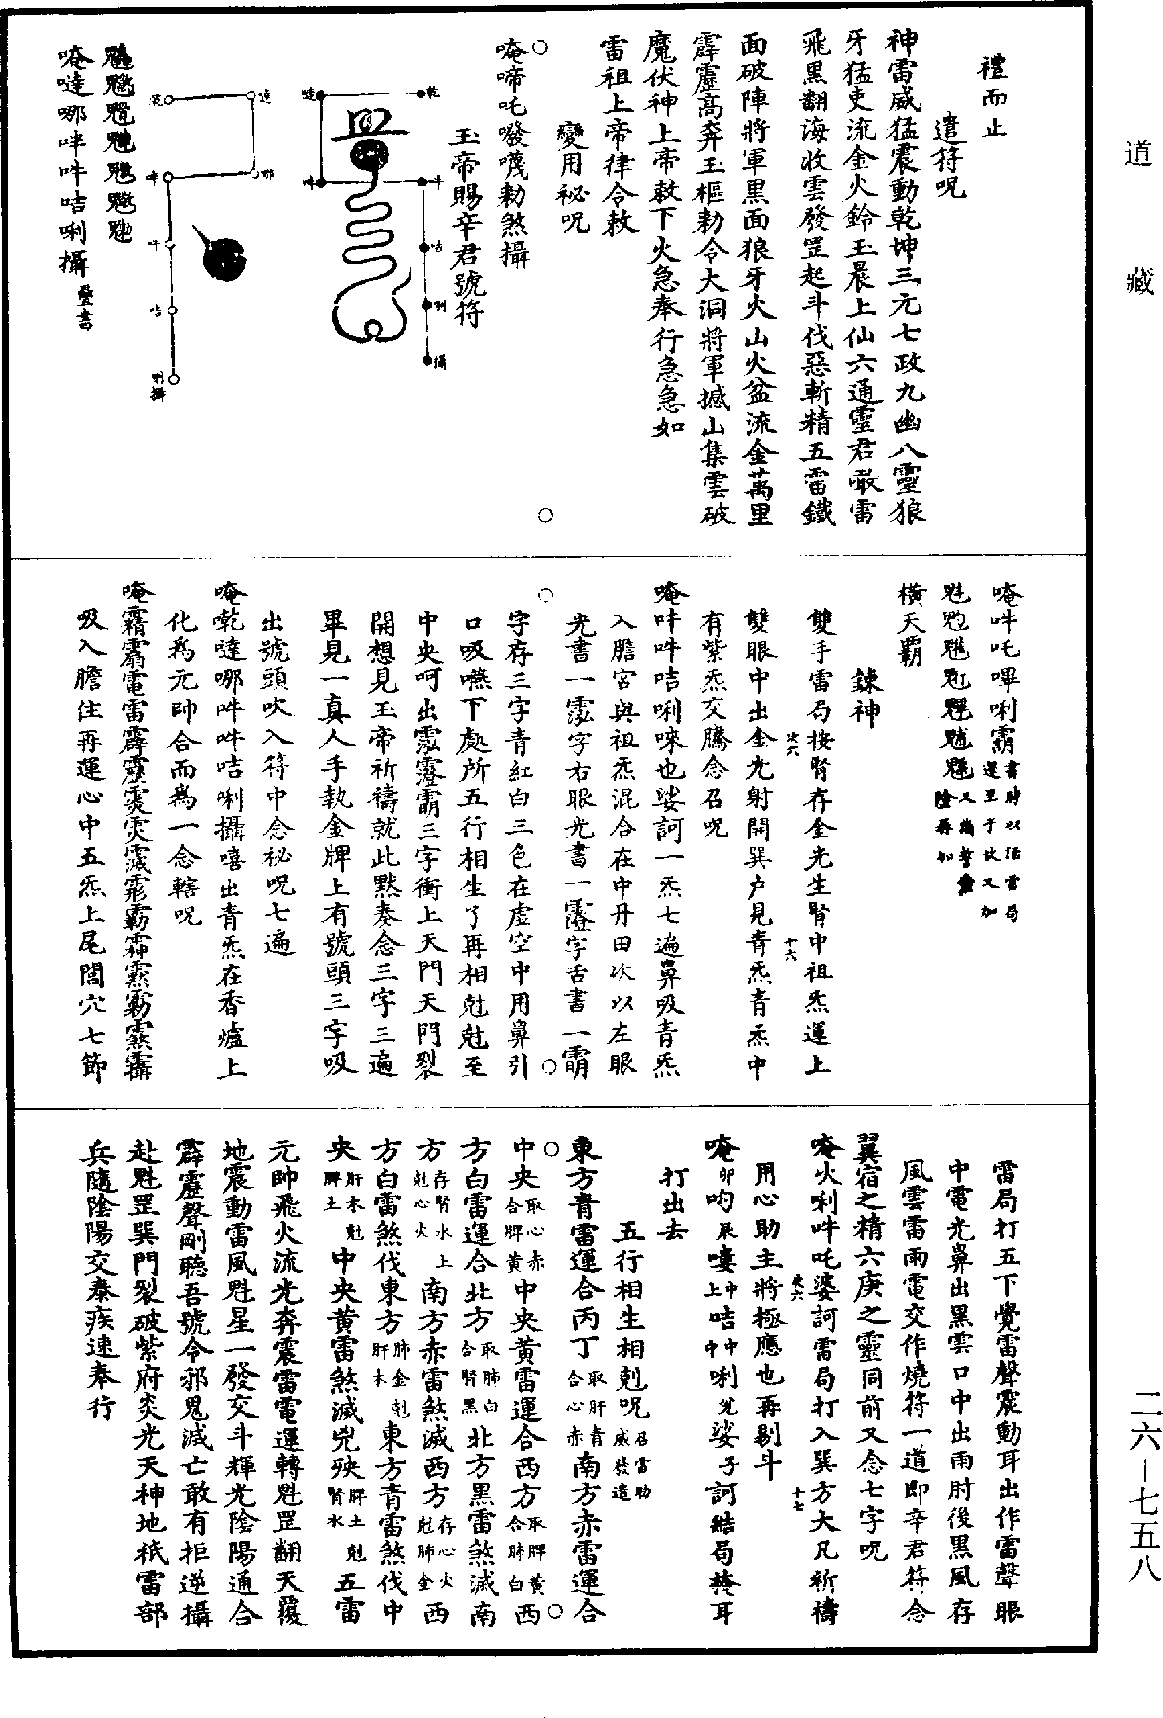 道藏
二六—七五八
禮而止
遣符呪
神雷威猛震動乾坤三元七政九幽八靈狼
牙猛吏流金火鈴玉晨上仙六通靈君噉雷
飛黑翻海收雲發罡起斗伐惡斬精五雷鐵
面破陣將軍黑面狼牙火山火盆流金萬里
霹靂高奔玉樞勑令大洞將軍撼山集雲破
魔伏神上帝敕下火急奉行急急如
雷祖上帝律令敕
變用祕呪
唵啼吒囉嘰勑煞攝
玉帝賜辛君號符
乾
噠
吽
咭
唎
攝
唵噠哪吽吽咭唎攝疊書
唵吽吒嗶唎霸書時以活雷局
橫天霸
鍊神
雙手雷局按腎存金光生腎中祖炁運上
雙眼中出金光射開巽户見青炁青炁中
有紫炁交騰念召呪
唵吽吽咭唎㗚也娑訶一炁七遍鼻吸青炁
入膽宮與祖炁混合在中丹田吹以左眼
光書一字右眼光書一字舌書一霸
字存三字青紅白三色在虛空中用鼻引
口吸嚥下處所五行相生了再相尅尅至
中央呵出霸三字衝上天門天門裂
開想見玉帝祈禱就此默奏念三字三遍
畢見一真人手執金牌上有號頭三字吸
出號頭吹入符中念祕呪七遍
唵乾噠哪吽吽咭唎攝嘻出青炁在香爐上
化為元帥合而為一念轄呪
吸入膽住再運心中五炁上尾閭穴七節
雷局打五下覺雷聲震動耳出作雷聲眼
中電光鼻出黑雲口中出雨肘後黑風存
風雲雷雨電交作燒符一道即辛君符念
翼宿之精六庚之靈同前又念七字呪
唵火唎吽吒婆訶雷局打入巽方大凡祈禱
用心助主將極應也再剔斗
唵卯吻辰嘍上中咭中中唎兇娑子訶結局掩耳
打出去
五行相生相剋呪召雷助威發遣
東方青雷運合丙丁取肝青合心赤南方赤雷運合
中央取心赤合脾黃中央黃雷運合西方取脾黃合肺白西
方白雷運合北方取肺白合腎黑北方黑雷煞滅南
方存腎水上尅心火南方赤雷煞滅西方存心火尅肺金西
方白雷煞伐東方肺金尅肝木東方青雷煞伐中
央肝木尅脾土中央黃雷煞滅兇殃脾土尅腎水五雷
元帥飛火流光奔震雷電運轉魁罡翻天覆
地震動雷風魁星一發交斗輝光陰陽通合
霹靂聲剛聽吾號令邪鬼滅亡敢有拒逆攝
赴魁罡巽門裂破紫府炎光天神地祇雷部
兵隨陰陽交泰疾速奉行